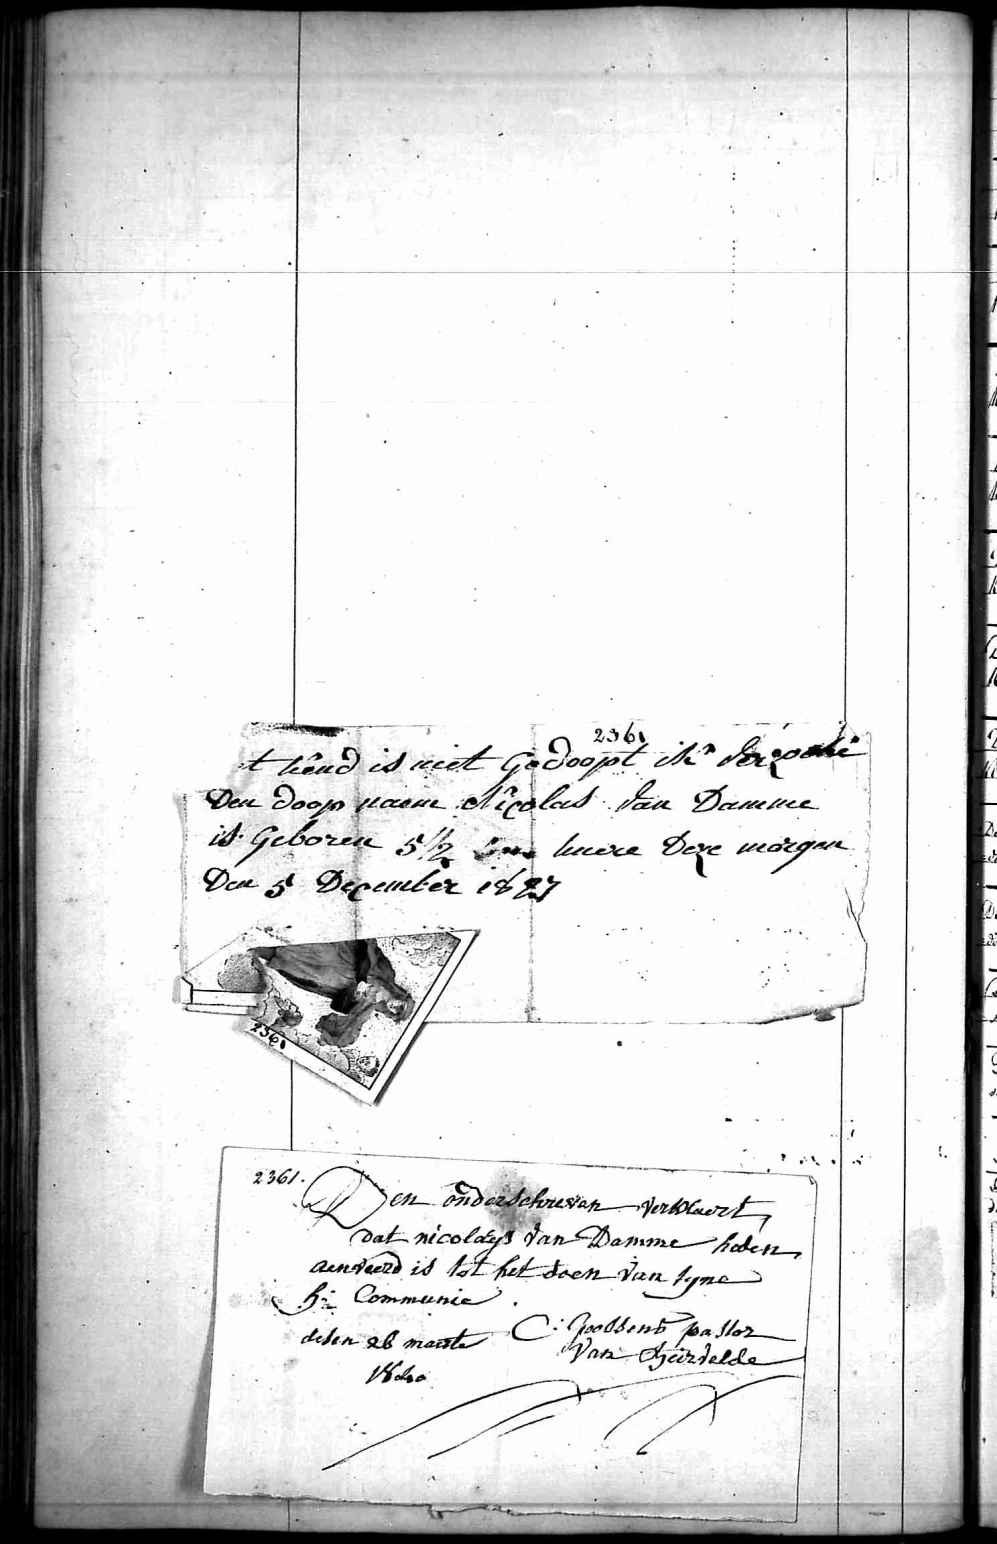 2361
t kend is niet Gedoopt ik
Den doop naem Nicolas Van Damme
is Geboren 5 1/2 huere Deze morgen
Den 5 December 1827
2361
2361.
Den onderschreven verklaert,
dat nicolays Van Damme heden
aenveerd is tot het doen van syne
h: Communie
C: Goossens pastor
desen 26 maerte
Van
1840